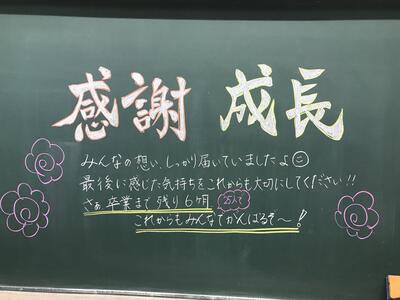 感謝 成長
みんなの想い、しっかり届いていましたよ
最後に感じた気持ちをこれからも大切にしてください!!
さぁ、卒業まで残り6ヶ月
これからもみんなでがんばるぞ〜!